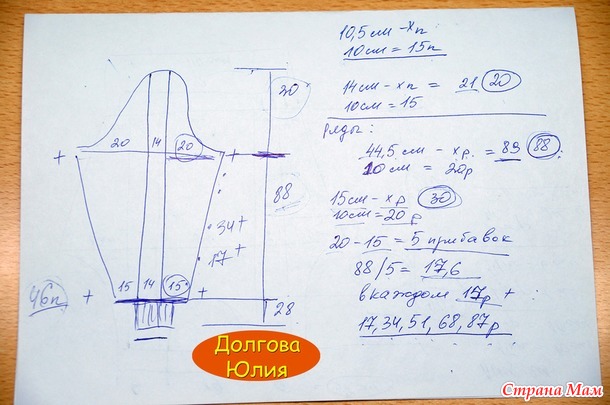 10,5 см – х п
10 см = 15 п
14 см – х п = 21 20
10 см = 15
ряды:
44,5 см – х р. = 89 88
10 см = 20 р
15 см – х р 30
10 см = 20 р
20 – 15 = 5 прибавок
88/5 = 17,6
в каждом 17 р +
17, 34, 51, 68, 87 р
30
20 14 20
+ +
88
34 +
17 +
15 14 15
46 п + +
28
Долгова
Юлия
Страна Мам